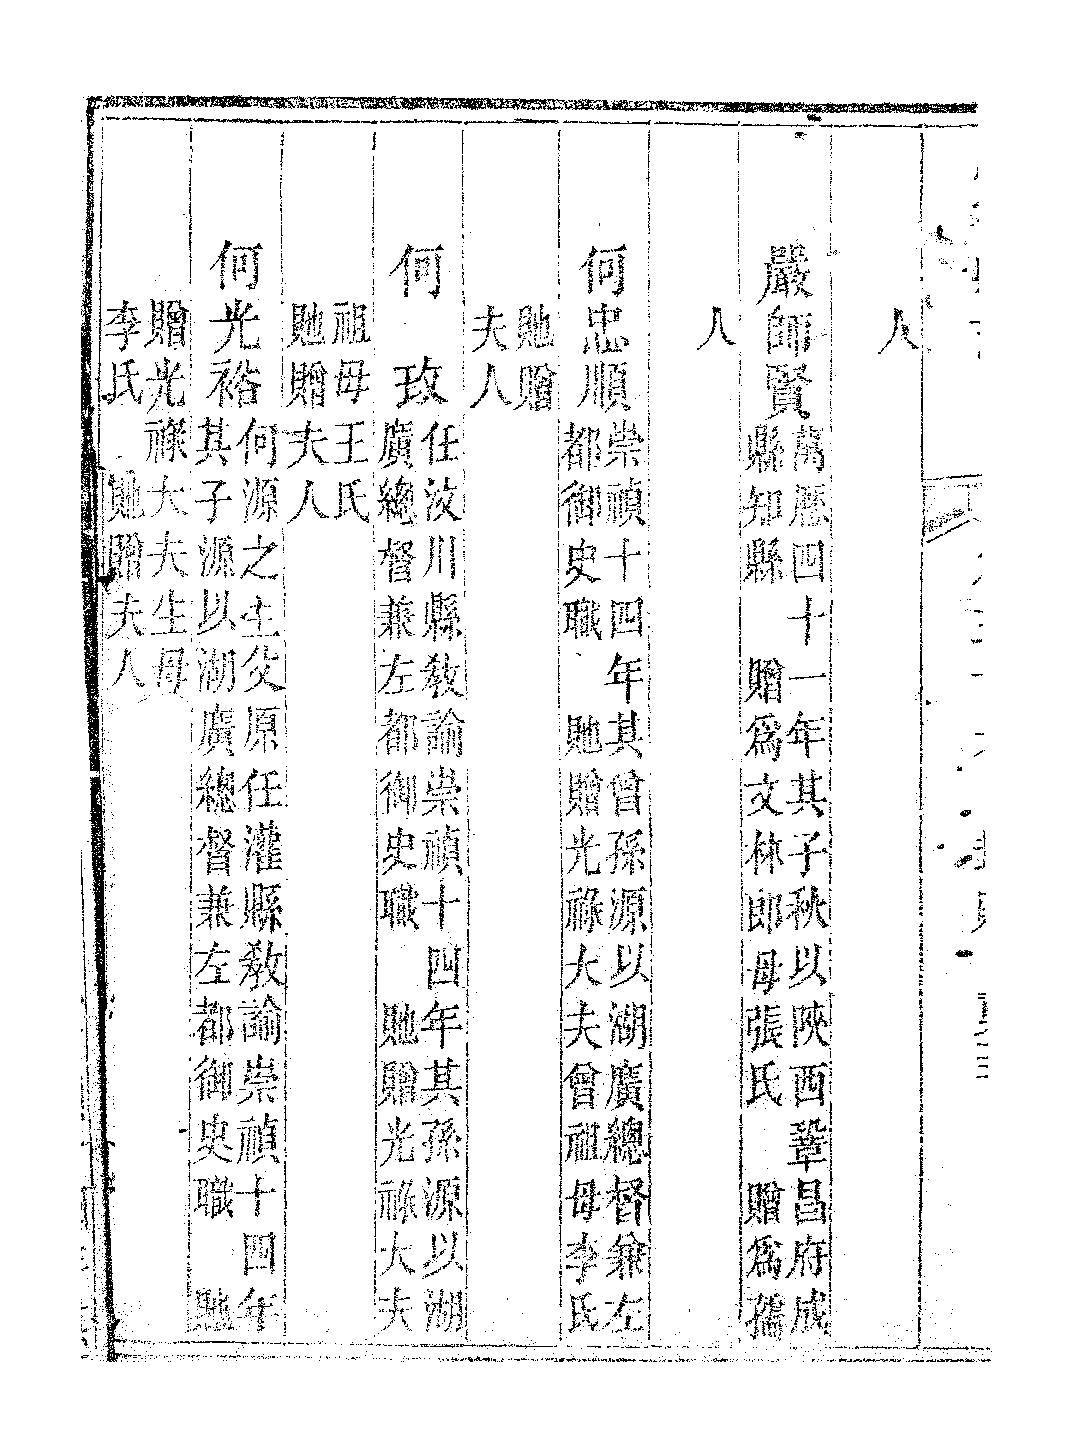 人
嚴師賢萬曆四十一年其子秋以陜西鞏昌府成
縣知縣　贈爲文林郎母張氏　贈爲孺
人
何忠順崇禎十四年其曾孫源以湖廣總督兼左
都御史職　貤贈光祿大夫曾祖母李氏
貤贈
夫人
何　玫任汶川縣教諭崇禎十四年其孫源以湖
廣總督兼左都御史職　貤贈光祿大夫
祖母王氏
貤贈夫人
何光裕何源之生父原任灌縣教諭崇禎十四年
其子源以湖廣總督兼左都御史職　貤
贈光祿大夫生母
李氏　貤贈夫人